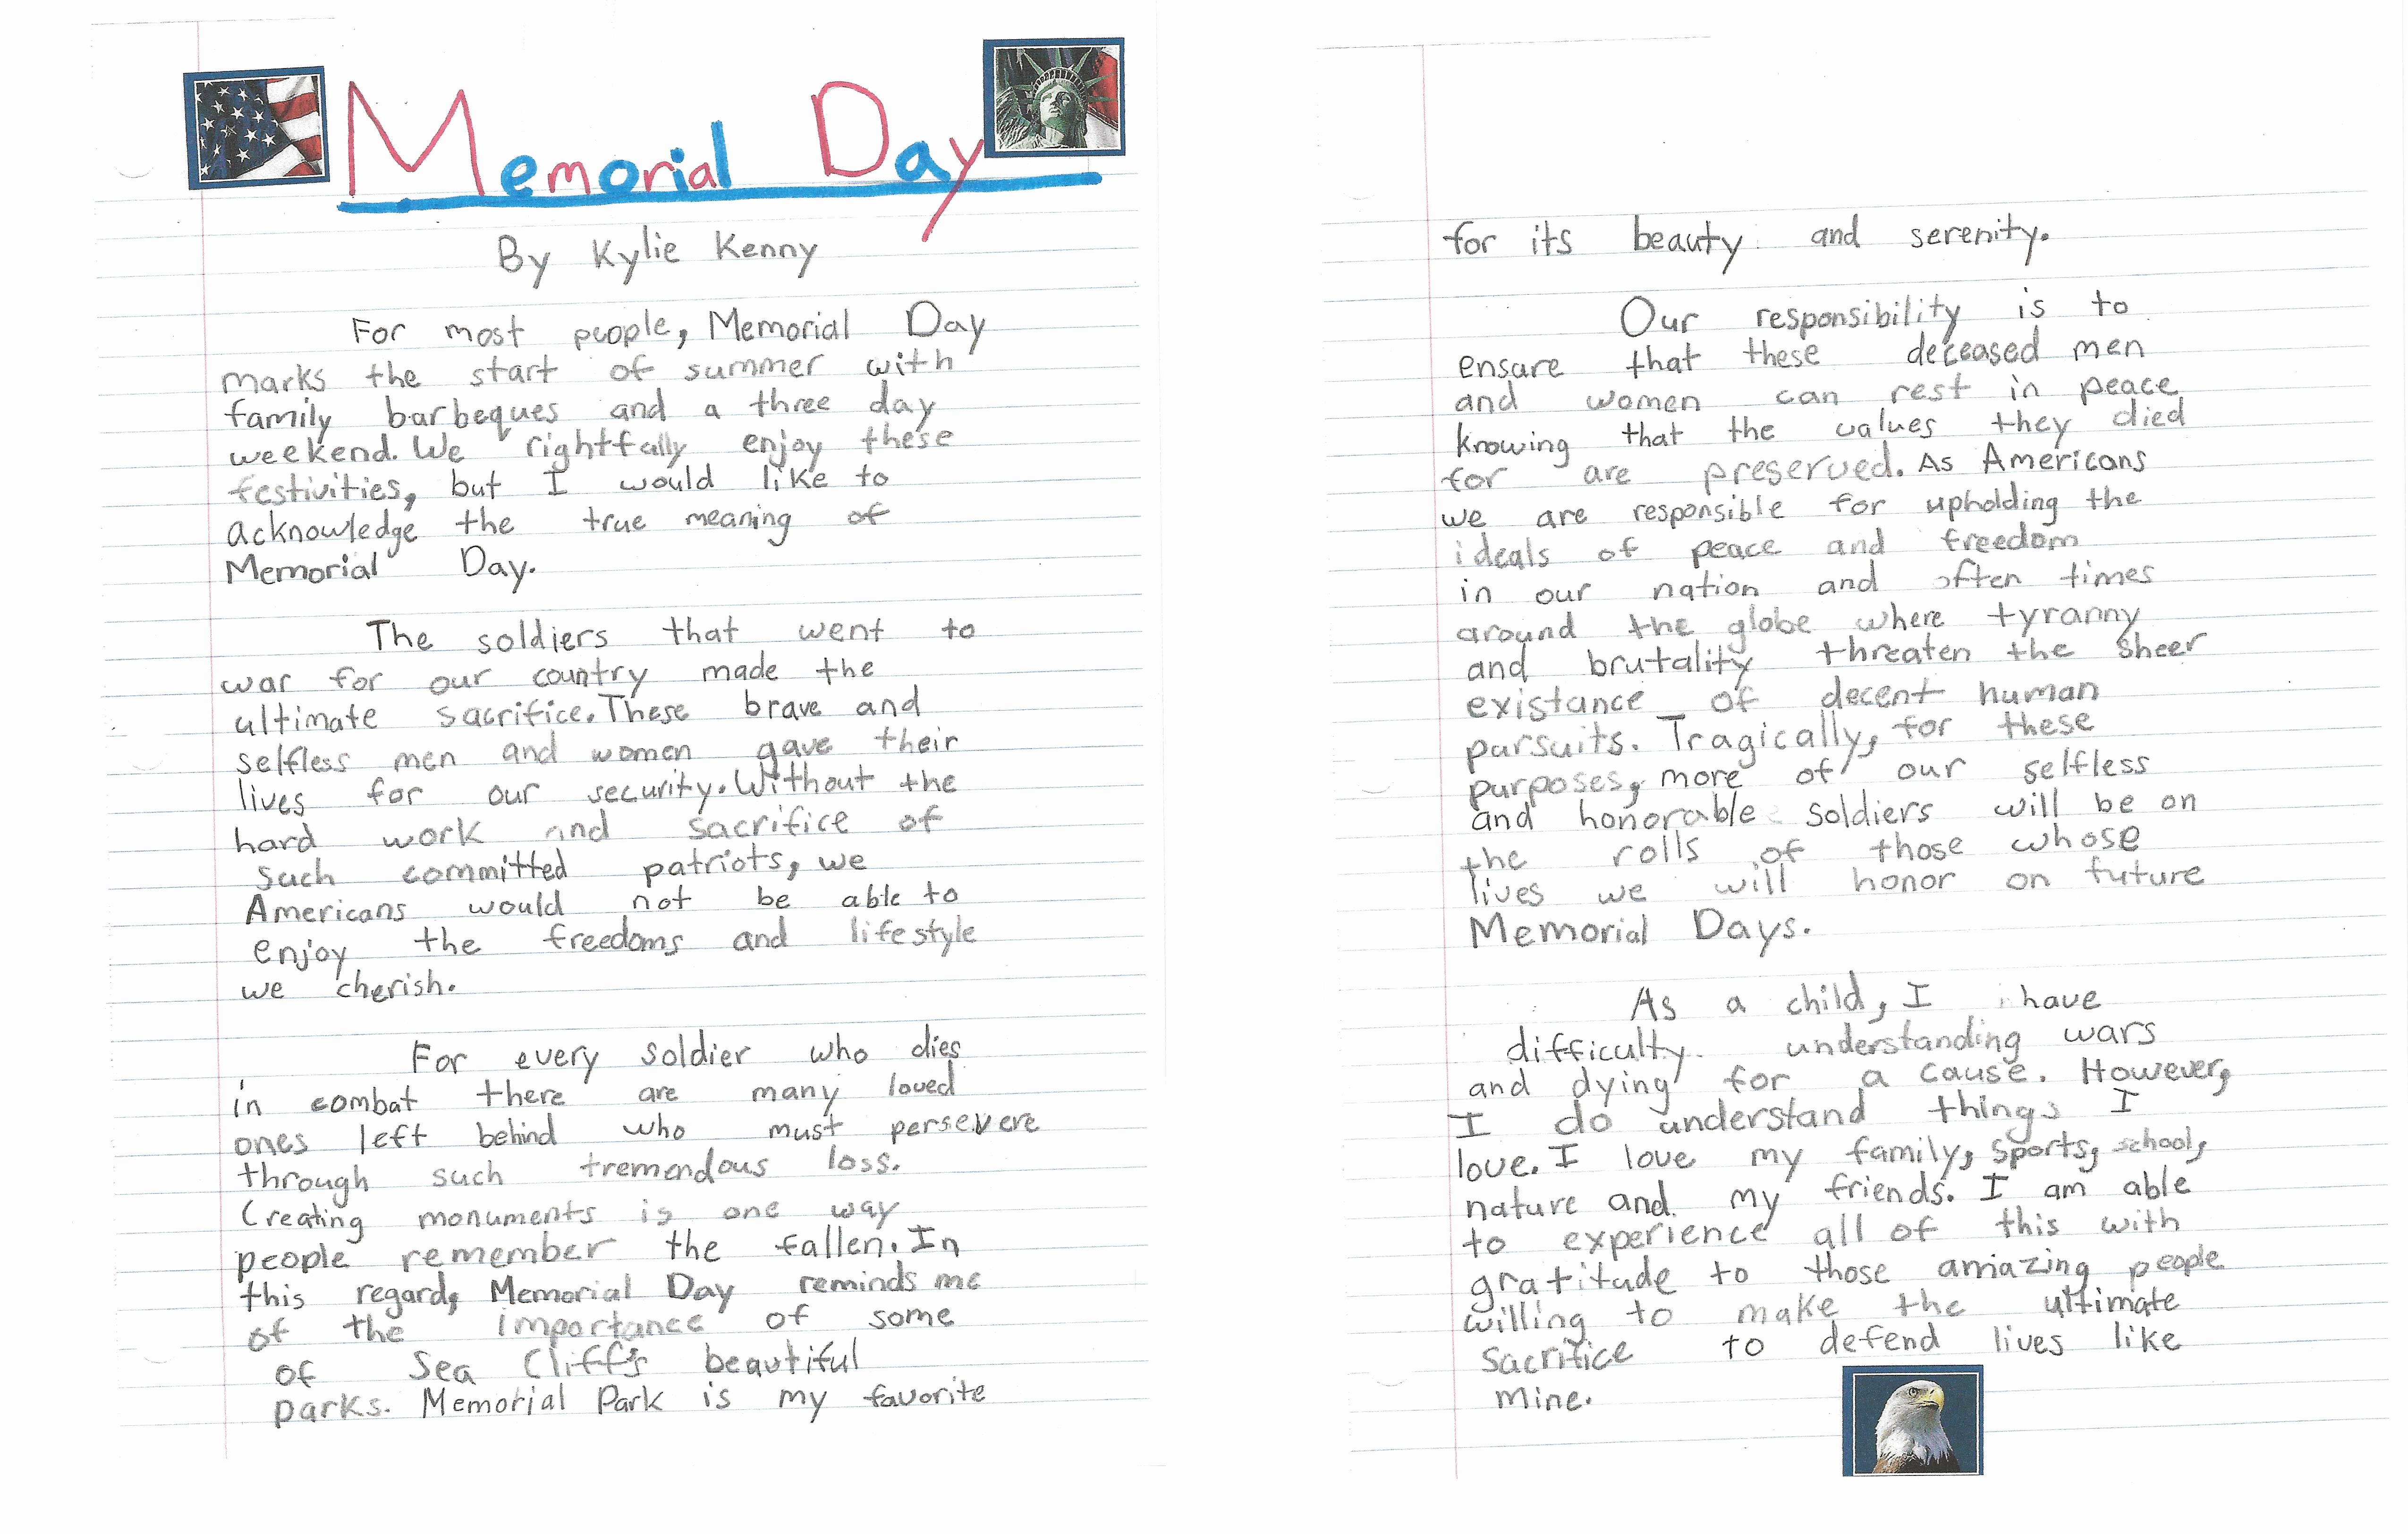 Memorial Day
By Kylie Kenny
For most people, Memorial Day
marks the start of summer with
family barbeques and a three day
weekend. We rightfully enjoy these
festivities, but I would like to
acknowledge the true meaning of
Memorial Day.
The soldiers that went to
war for our country made the
ultimate sacrifice. These brave and
selfless men and women gave their
lives for our security. Without the
hard work and sacrifice of
such committed patriots, we
Americans would not be able to
enjoy the freedoms and lifestyle
we cherish.
For every soldier who dies
in combat there are many loved
ones left behind who must persevere
through such tremendous loss.
Creating monuments is one way
people remember the fallen. In
this regard, Memorial Day reminds me
of the importance of some
of Sea Cliff's beautiful
parks. Memorial Park is my favorite
for its beauty and serenity.
Our responsibility is to
ensure that these deceased men
and women can rest in peace
knowing that the values they died
for are preserved. As Americans
we are responsible for upholding the
ideals of peace and freedom
in our nation and often times
around the globe where tyranny
and brutality threaten the sheer
existance of decent human
pursuits. Tragically, for these
purposes, more of our selfless
and honorable soldiers will be on
the rolls of those whose
lives we will honor on future
Memorial Days.
As a child, I have
difficulty understanding wars
and dying for a cause. However,
I do understand things I
love. I love my family, sports, school,
nature and my friends. I am able
to experience all of this with
gratitude to those amazing people
willing to make the ultimate
sacrifice to defend lives like
mine.